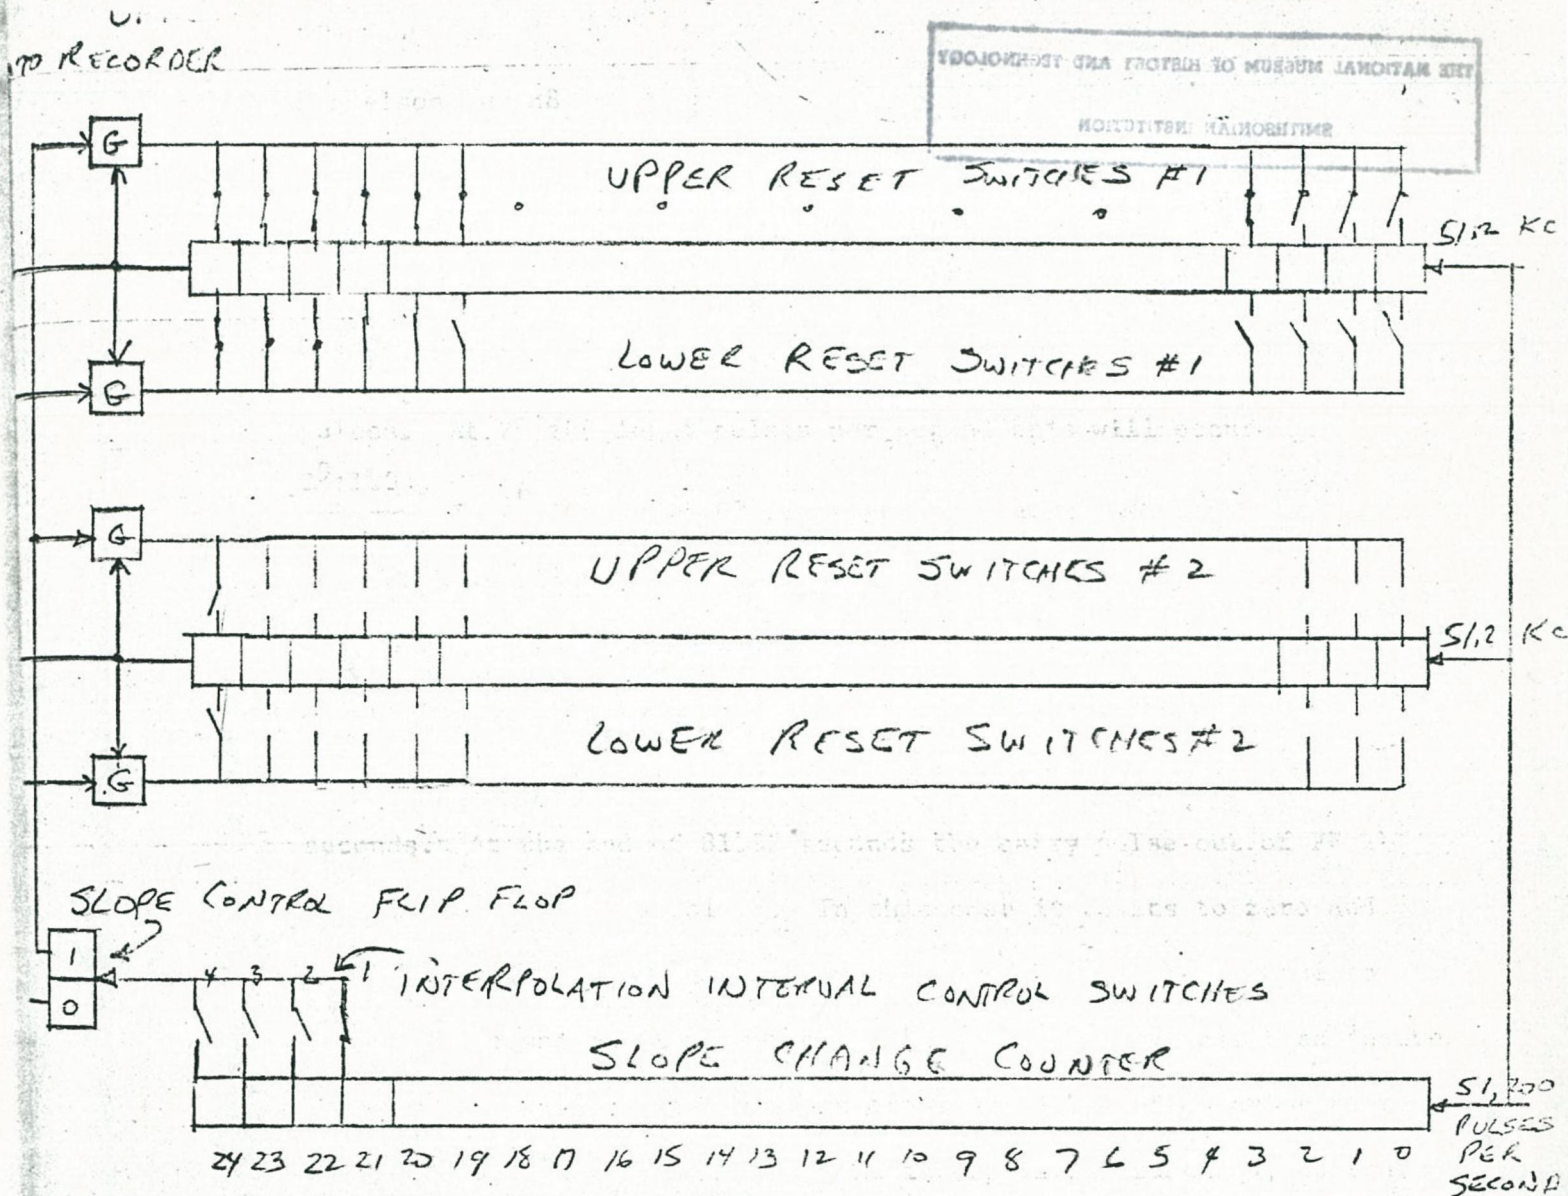 TO RECORDER
THE NATIONAL MUSEUM OF HISTORY AND TECHNOLOGY
SMITHSONIAN INSTITUTION
G
UPPER RESET SWITCHES #1
51.2 KC
LOWER RESET SWITCHES #1
G
G
UPPER RESET SWITCHES #2
51.2 KC
LOWER RESET SWITCHES #2
G
SLOPE CONTROL FLIP FLOP
1
0
4 3 2 1
INTERPOLATION INTERVAL CONTROL SWITCHES
SLOPE CHANGE COUNTER
51,200
PULSES
PER
SECOND
24 23 22 21 20 19 18 17 16 15 14 13 12 11 10 9 8 7 6 5 4 3 2 1 0